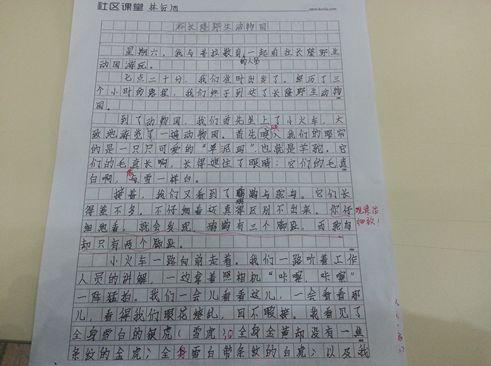 社区课堂
游长隆野生动物园
星期六，我与普拉提的人员一起前往长隆野生
动物园游玩。
七点二十分，我们准时出发了。经历了三
个小时的路程，我们终于到达了长隆野生动物
园。
到了动物园，我们首先坐上了小火车，大
致地游览了一遍动物园。首先映入我们的眼帘
的是一只只可爱的“草泥马”，也就是羊驼。它
们的毛真长啊，长得遮住了眼睛；它们的毛真
白啊，与雪一样白。
接着，我们又看到了与鸵鸟。它们长
得差不多，不仔细看还真得区别不出来。你仔
细地看，就会发现，有三个脚趾，而鸵鸟
却只有两个脚趾。
观察得细致！
小火车一路向前走着。我们一路听着工作
人员的讲解，一边拿着照相机“咔嚓，咔嚓”
一阵猛拍。我们一会儿看看这儿，一会看看那
儿，看得我们眼花缭乱，目不暇接。我看见了
全身雪白的银虎（雪虎）；全身金黄却没有一条
条纹的金虎；全身雪白带条纹的白虎；以及我